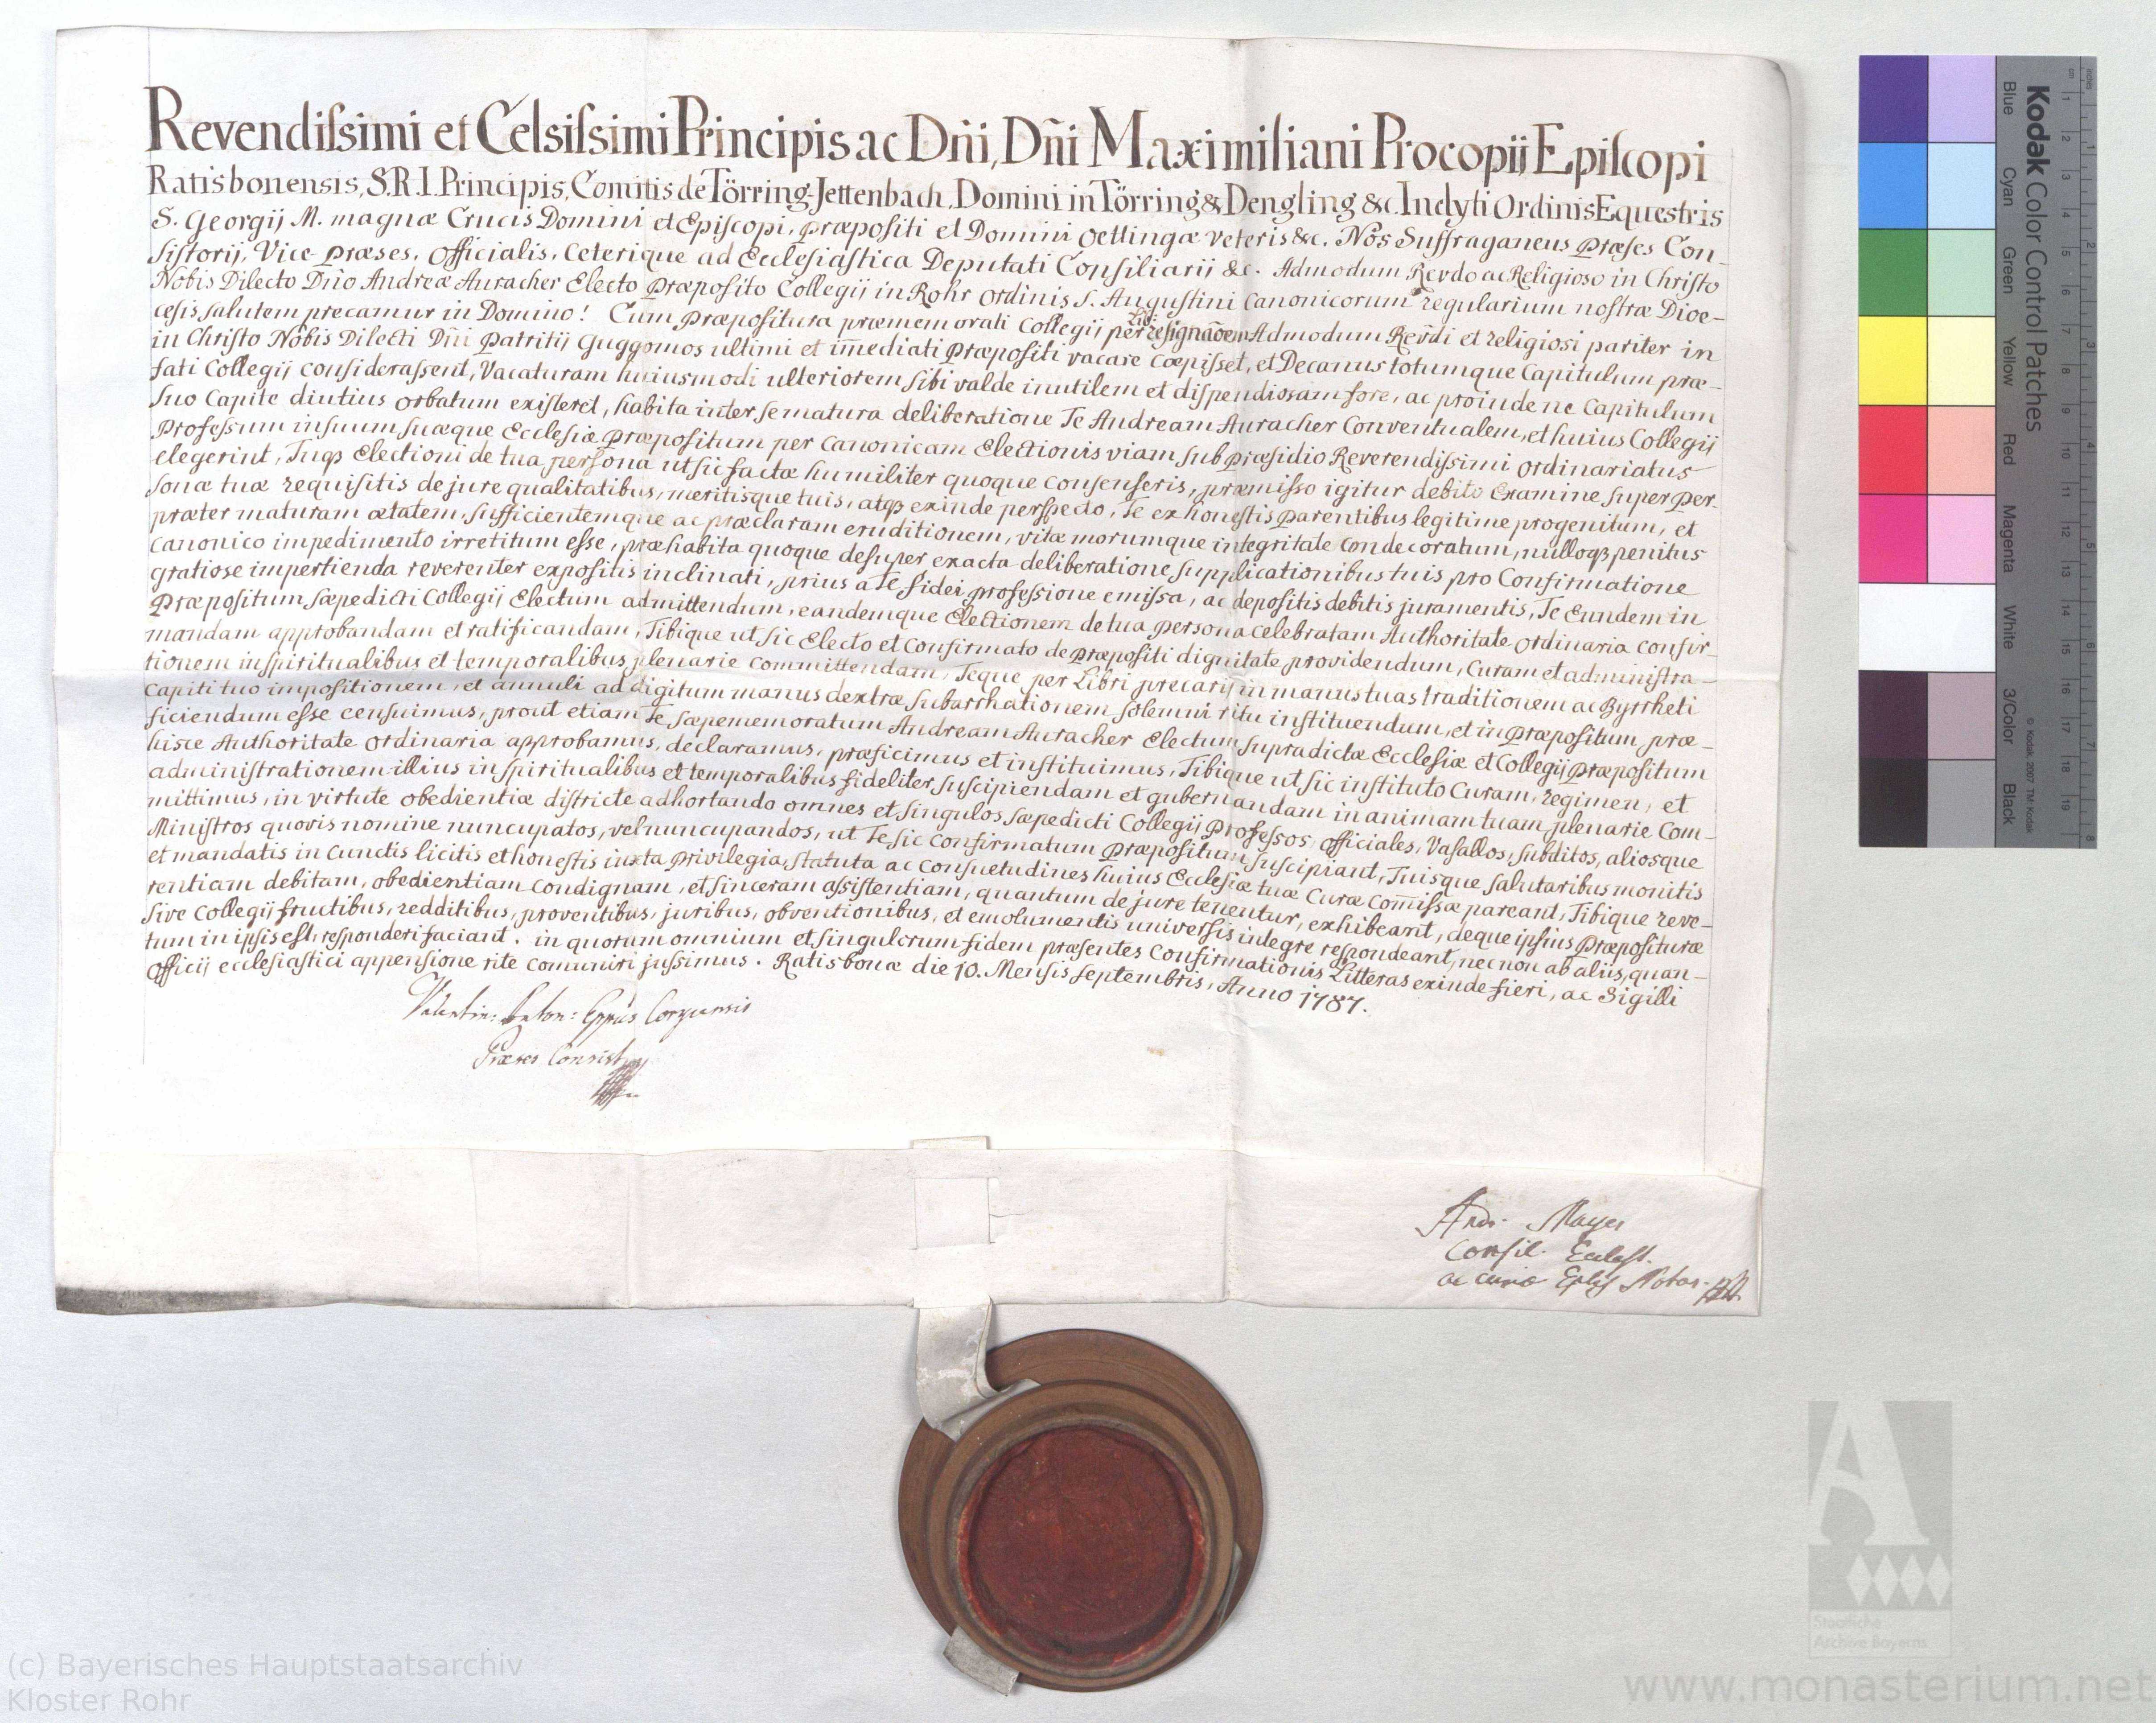 Revendiſsimi et Celsiſsimi Principis ac Dñi, Dñi Maximiliani Procopii Epiſcopi
Ratisbonensis, S.R.I. Principis, Comitis de Törring-Jettenbach, Domini in Törring & Dengling &c. Inclyti Ordinis Equestris
S. Georgij M. magnæ Crucis Domini et Epiſcopi, præpositi et Domini Oettingæ veteris &c. Nos Suffraganeus Præſes Con-
ſiſtorij, Vice-Præses, Officialis, Ceterique ad Eccleſiaſtica Deputati Conſiliarii &c. Admodum Revdo ac Religioso in Chriſto
Nobis Dilecto Dño Andreæ Auracher Electo Præposito Collegij in Rohr Ordinis S. Auguſtini Canonicorum regularium noſtræ Dioe-
cesis salutem precamur in Domino! Cum Præpositura præmemorati Collegij per Lib: resignãoem Admodum Rev̄di et religiosi pariter in
in Chriſto Nobis Dilecti Dñi Patritij Guggomos ultimi et im̄ediati Præpositi vacare cœpisset, et Decanus totumque Capitulum præ-
fati Collegij consideraſsent, Vacaturam huiusmodi ulteriorem ſibi valde inutilem et diſpendiosam fore, ac proinde ne Capitulum
ſuo Capite diutius orbatum exiſteret, habita inter ſe matura deliberatione Te Andream Auracher Conventualem, et huius Collegij
Profeſsum in ſuum ſuæque Eccleſiæ Præpositum per Canonicam Electionis viam ſub Præſidio Reverendiſsimi Ordinariatus
elegerint, Tuqꝫ Electioni de tua perſona ut ſic factæ humiliter quoque conſenſeris, præmiſso igitur debito Examine ſuper Per-
ſonæ tuæ requiſitis de jure qualitatibus, meritisque tuis, atqꝫ exinde perſpecto, Te ex honeſtis Parentibus legitime progenitum, et
præter maturam ætatem, ſufficientemque ac præclaram eruditionem, vitæ morumque integritate condecoratum, nulloqꝫ penitus
Canonico impedimento irretitum eſse, præhabita quoque deſuper exacta deliberatione ſupplicationibus tuis pro Confirmatione
gratiose impertienda reverenter expositis inclinati, prius a Te fidei profeſsione emiſsa, ac depositis debitis juramentis, Te Eundem in
Præpositum ſæpedicti Collegij Electum admittendum, eandemque Electionem de tua perſona celebratam Authoritate Ordinaria confir-
mandam approbandam et ratificandam, Tibique ut ſic Electo et Confirmato de Præpositi dignitate providendum, Curam et adminiſtra-
tionem in ſpiritualibus et temporalibus plenarie committendam, Teque per Libri precarij in manus tuas traditionem ac Byrrheti
capiti tuo impositionem, et annuli ad digitum manus dextræ ſubarrhationem ſolemni ritu inſtituendum, et in Præpositum præ-
ficiendum eſse cenſuimus, prout etiam Te ſæpememoratum Andream Auracher Electum ſupradictæ Eccleſiæ et Collegij Præpositum
hisce Authoritate Ordinaria approbamus, declaramus, præficimus et inſtituimus, Tibique ut ſic inſtituto Curam, regimen, et
adminiſtrationem illius in ſpiritualibus et temporalibus fideliter ſuſcipiendam et gubernandam in animam tuam plenarie com-
mittimus, in virtute obedientiæ diſtricte adhortando omnes et ſingulos ſæpedicti Collegij Profeſsos, Officiales, Vaſallos, ſubditos, aliosque
Miniſtros quovis nomine nuncupatos, vel nuncupandos, ut Te ſic confirmatum Præpositum ſuſcipiant, Tuisque ſalutaribus monitis
et mandatis in cunctis licitis et honeſtis iuxta Privilegia, ſtatuta ac conſuetudines huius Eccleſiæ tuæ Curæ com̄iſsæ pareant, Tibique reve-
rentiam debitam, obedientiam condignam, et ſinceram aſsiſtentiam, quantum de jure tenentur, exhibeant, deque ipſius Præposituræ
ſive Collegij fructibus, redditibus, proventibus, juribus, obventionibus, et emolumentis universis integre reſpondeant, nec non ab aliis, quan-
tum in ipsis eſt, reſponderi faciant. In quorum omnium et ſingulorum fidem præſentes Confirmationis Litteras exinde fieri, ac Sigilli
Officij eccleſiaſtici appenſione rite comuniri juſsimus. Ratisbonæ die 10. Menſis ſeptembris, Anno 1787.
Valentin: Anton: Eppũs Corycensis
Præses Consist
And. Mayer
Conſil. Eccleſt.
ac curiæ Eplis Notar.
Kodak Color Control Patches
Blue Cyan Green Yellow Red Magenta White 3/Color Black
© Kodak, 2007 TM: Kodak
cm 1 2 3 4 5 6 7 8 9 10 11 12 13 14 15 16 17 18 19
inches 1 2 3 4 5 6 7 8
Staatliche
Archive Bayerns
(c) Bayerisches Hauptstaatsarchiv
Kloster Rohr
www.monasterium.net